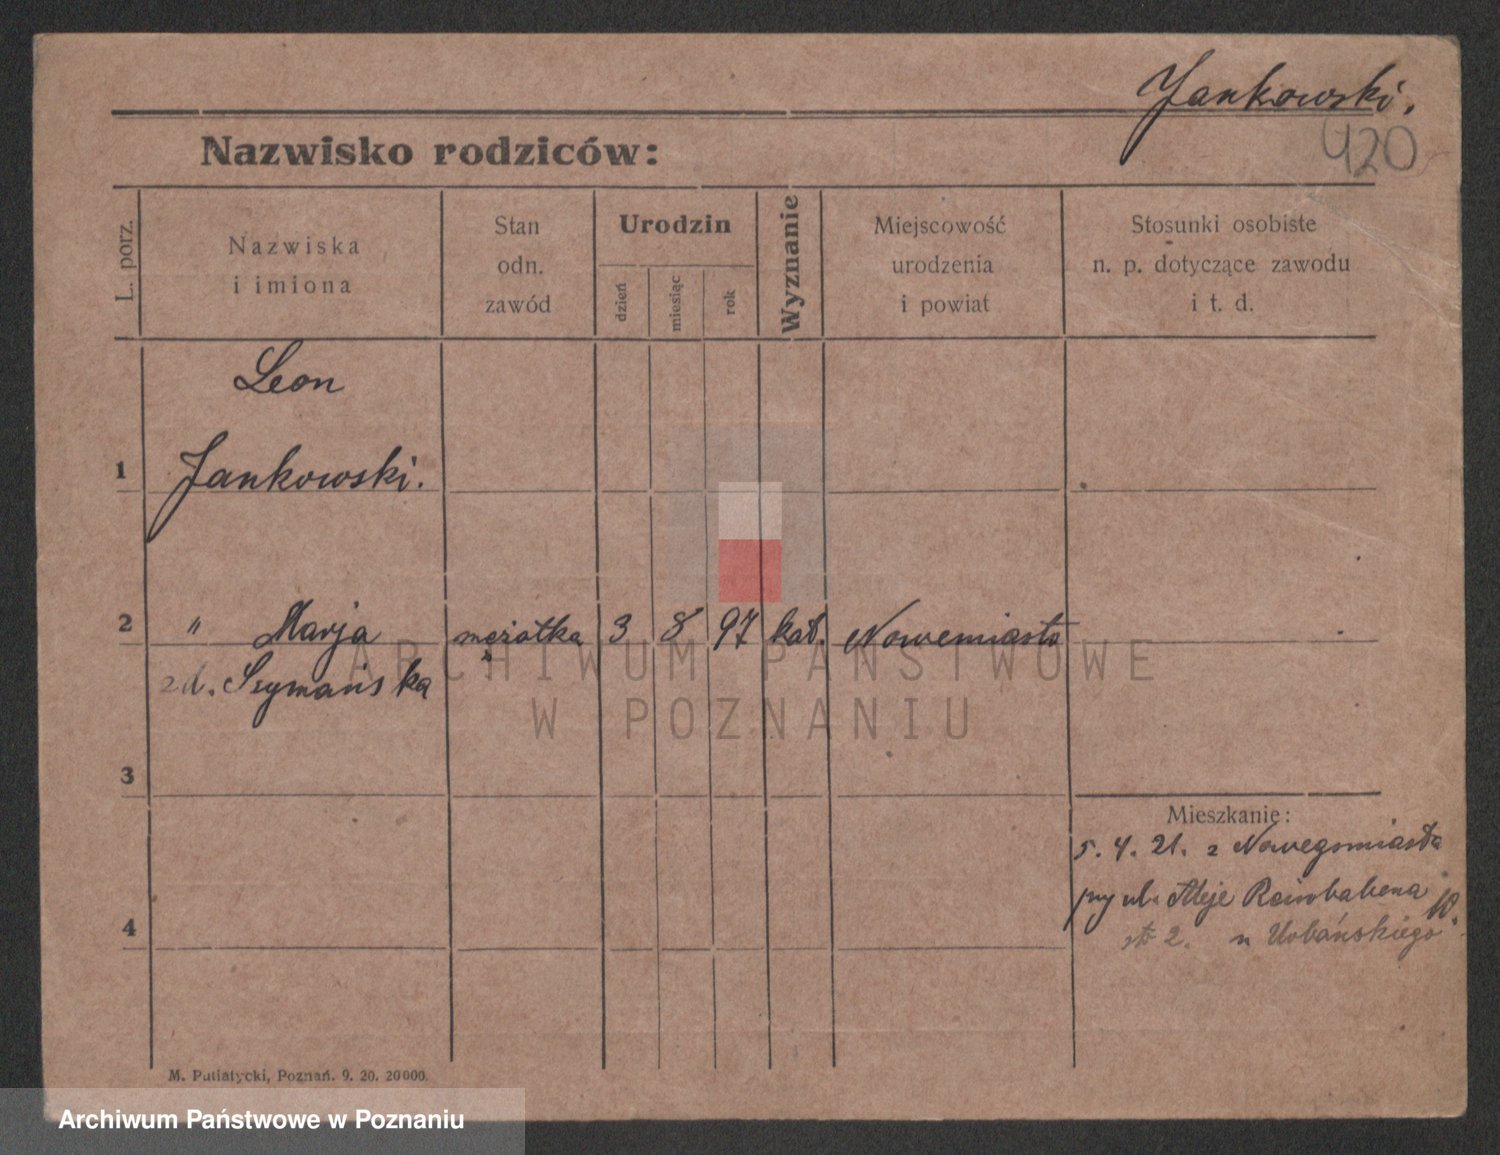 Jankowski.
420
Nazwisko rodziców:
L. porz.
Nazwiska
i imiona
Stan
odn.
zawód
Urodzin
dzień
miesiąc
rok
Wyznanie
Miejscowość
urodzenia
i powiat
Stosunki osobiste
n. p. dotyczące zawodu
i t. d.
Leon
1 Jankowski.
2 " Marja mężatka 3 8 97 kat. Nowemiasto
zd. Szymańska
ARCHIWUM PAŃSTWOWE
W POZNANIU
3
Mieszkanie:
5. 4. 21. z Nowegomiasta
przy ul. Aleje Reinbabena 10.
4
2. u Urbańskiego
M. Putiatycki, Poznań. 9. 20. 20000.
Archiwum Państwowe w Poznaniu